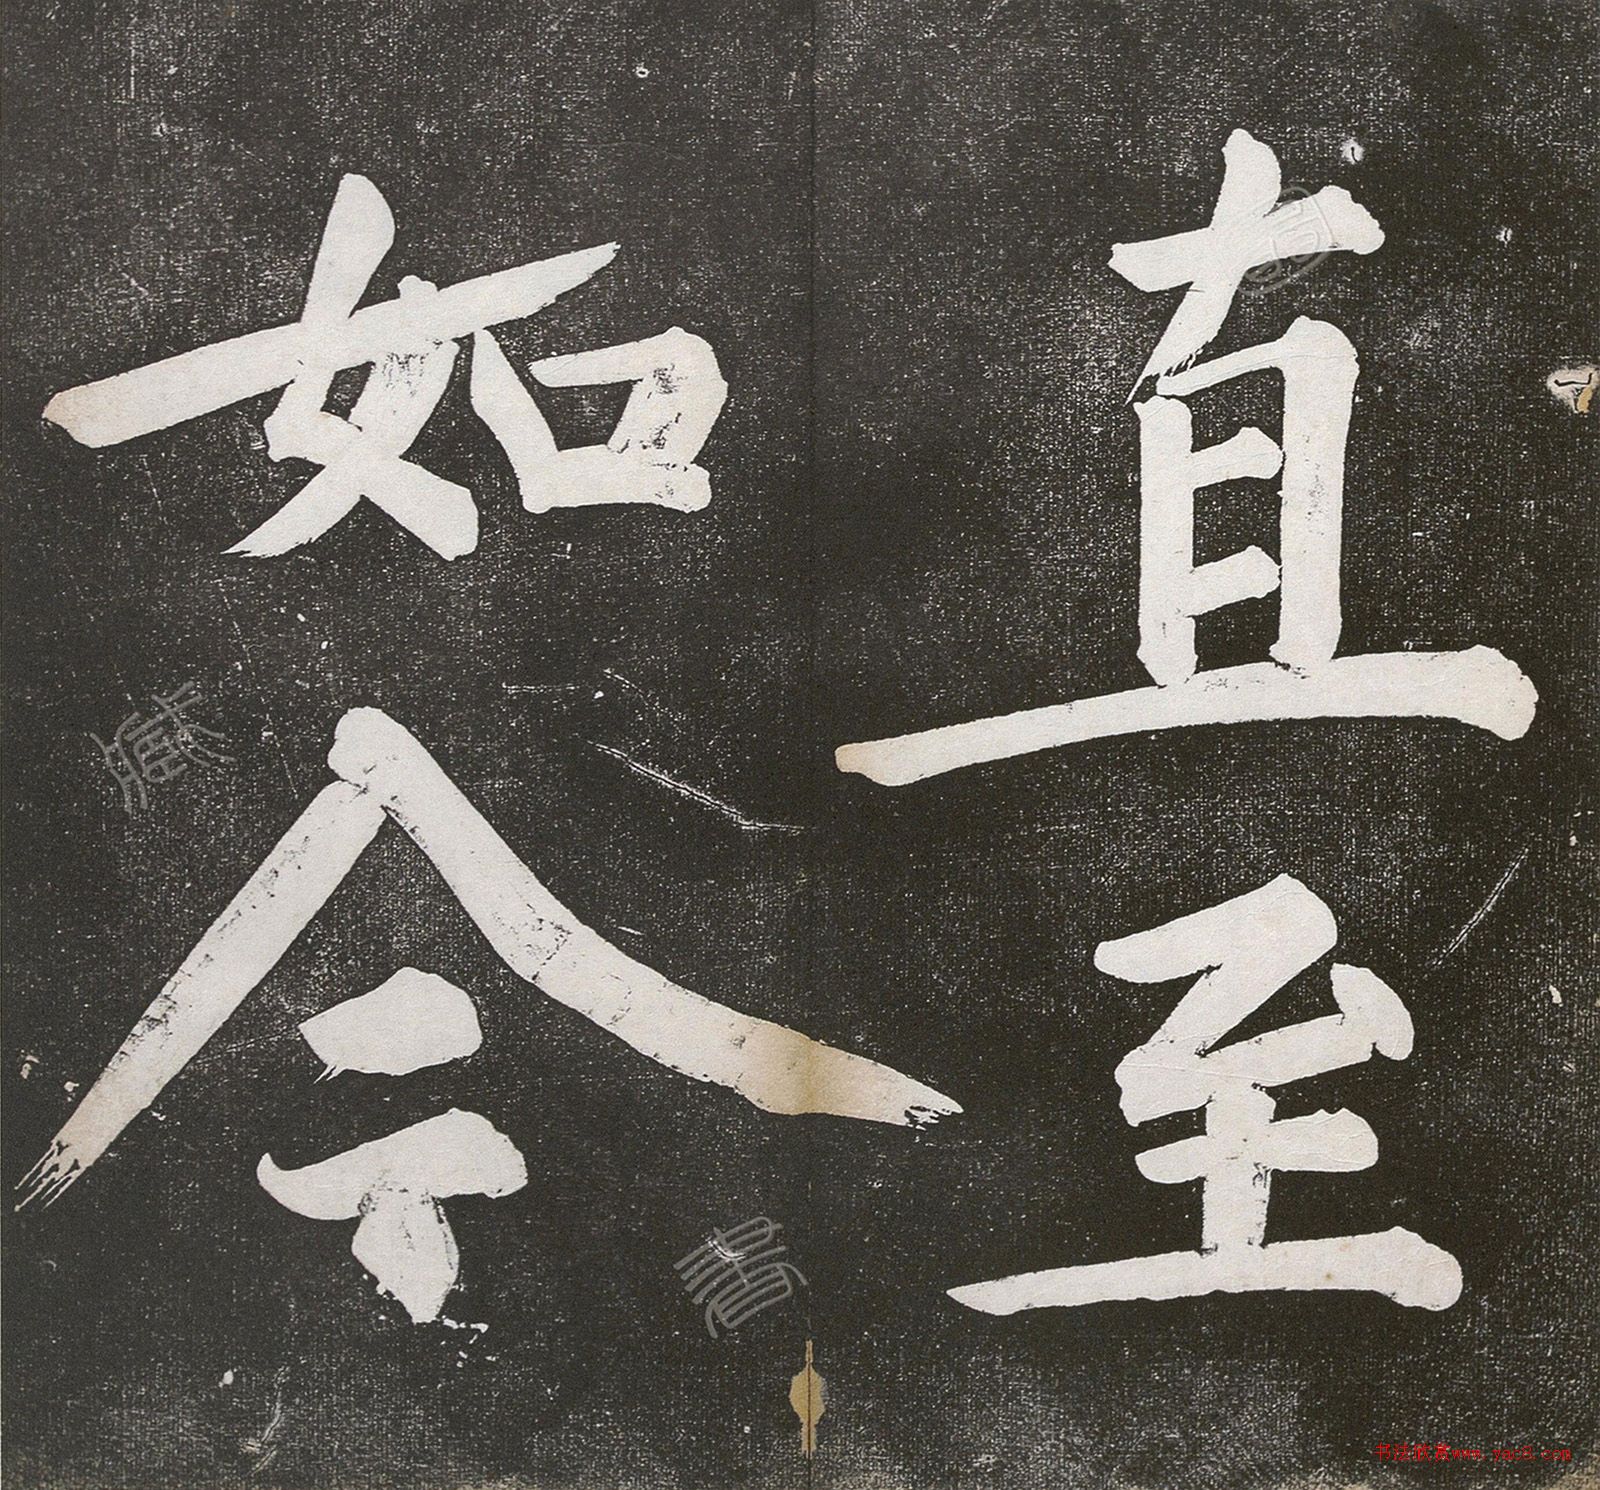 直至
如今
书法欣赏www.yac8.com